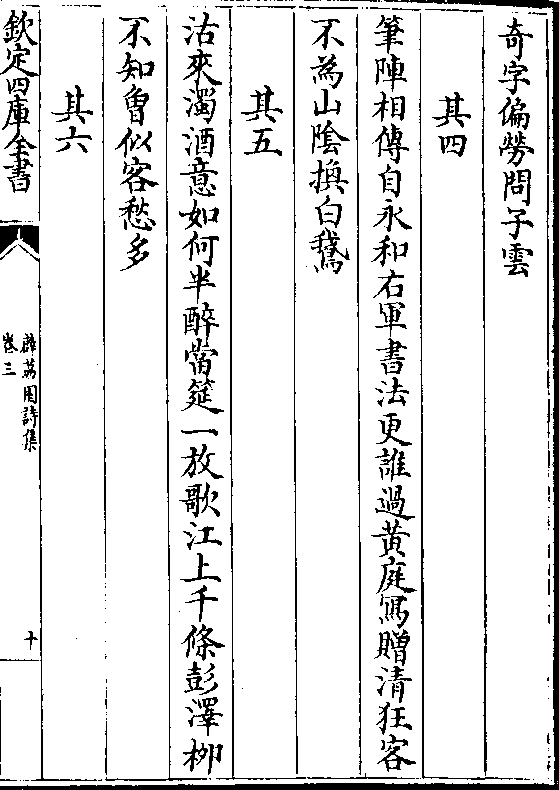 奇字偏勞問子雲
其四
筆陣相傳自永和右軍書法更誰過黄庭寫贈清狂客
不為山陰換白鵝
其五
沽來濁酒意如何半醉當筵一放歌江上千條彭澤柳
不知曾似客愁多
其六
欽定四庫全書
薜荔園詩集
卷三
十